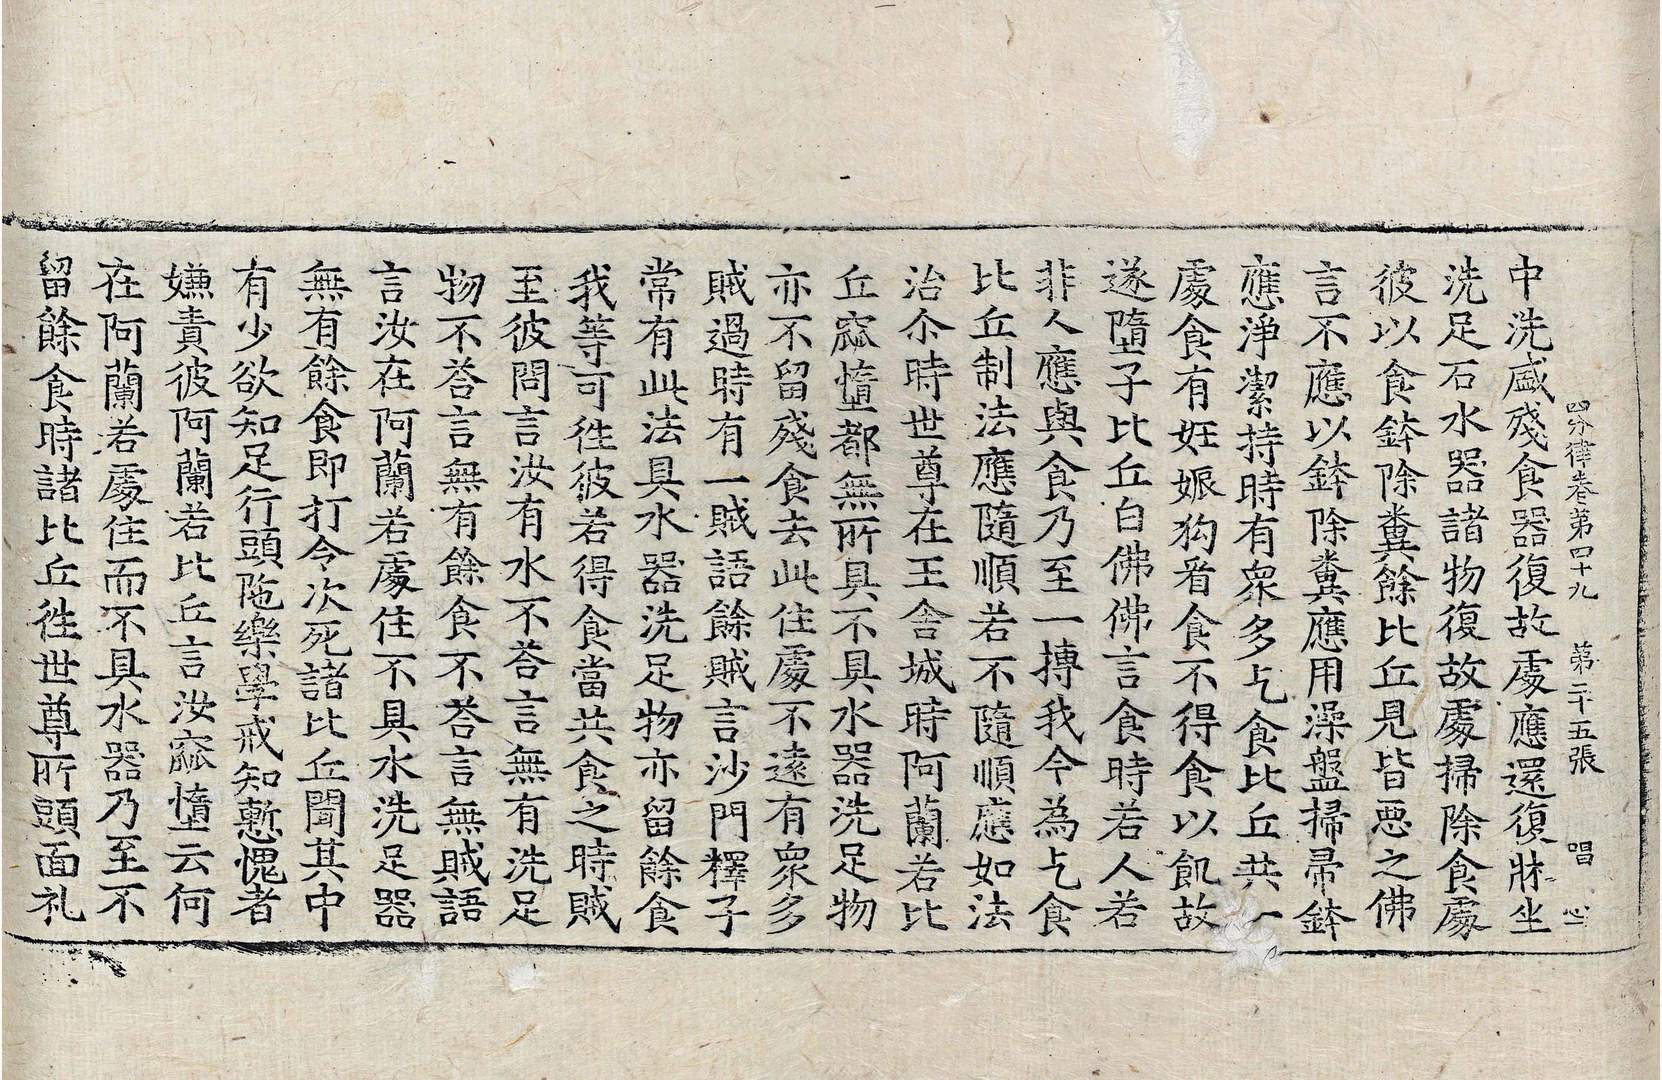 四分律卷第四十九 第二十五張 唱 心
中洗盛殘食器復故處應還復牀坐
洗足石水器諸物復故處掃除食處
彼以食鉢除糞餘比丘見皆惡之佛
言不應以鉢除糞應用澡盤掃帚鉢
應淨潔持時有衆多乞食比丘共一
處食有妊娠狗看食不得食以飢故
遂墮子比丘白佛佛言食時若人若
非人應與食乃至一摶我今為乞食
比丘制法應隨順若不隨順應如法
治尒時世尊在王舍城時阿蘭若比
丘窳惰都無所具不具水器洗足物
亦不留殘食去此住處不遠有衆多
賊過時有一賊語餘賊言沙門釋子
常有此法具水器洗足物亦留餘食
我等可徃彼若得食當共食之時賊
至彼問言汝有水不荅言無有洗足
物不荅言無有餘食不荅言無賊語
言汝在阿蘭若處住不具水洗足器
無有餘食即打令次死諸比丘聞其中
有少欲知足行頭陁樂學戒知慙愧者
嫌責彼阿蘭若比丘言汝窳惰云何
在阿蘭若處住而不具水器乃至不
留餘食時諸比丘徃世尊所頭面礼